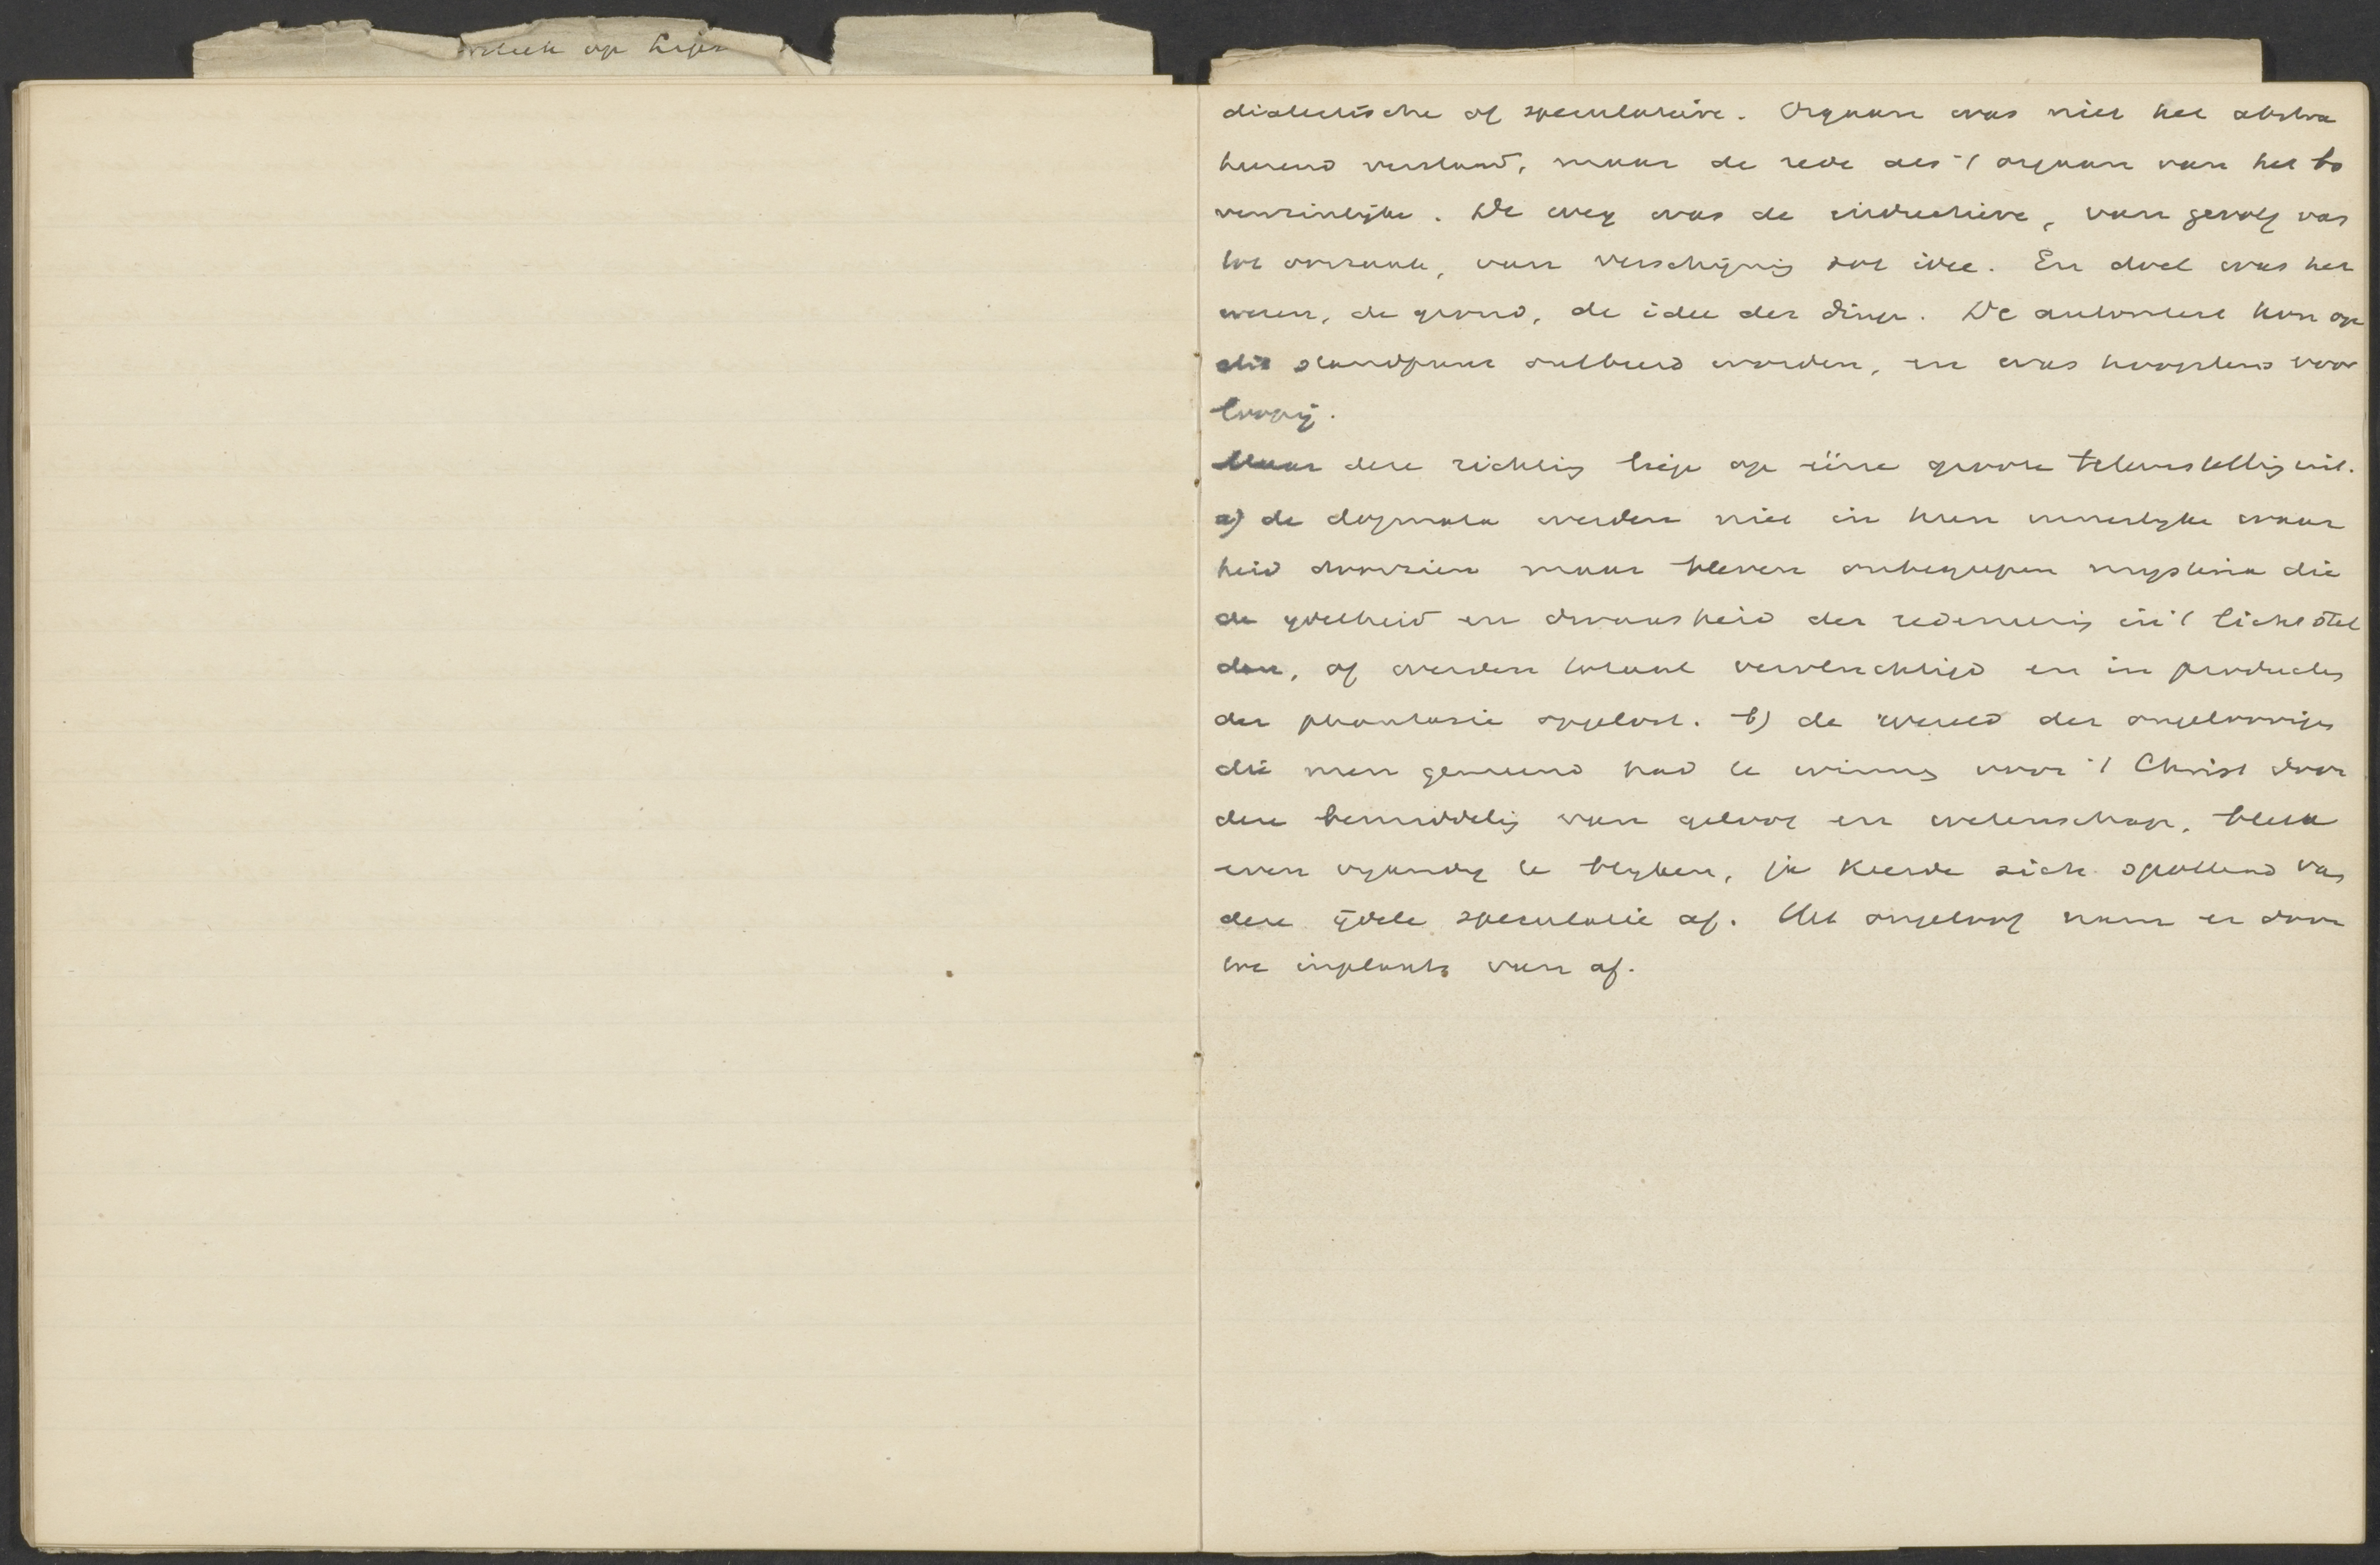 op
dialectische of speculatieve. Orgaan was niet het abstra
heerend verstand, maar de rede als 't orgaan van het bo
venzinlijke. De weg was de inductieve, van gevolg van
tot oorzaak, van verschijnig tot idee. En doel was het
wezen, de grond, de idee der dingn. De autoriteit kon op
dit standpunt ontbeerd worden, en was hoogstens voor
loopig.
Maar deze richtig liep op eene groote teleurstellig uit.
a) de dogmata werden niet in hun innerlyke waar
heid doorzien maar bleven onbegrepen mysteria die
de ydelheid en dwaasheid der redeneerig in 't licht stel
den, of werden totaal vervluchtigd en in producten
der phantasie opgelost. b) de wereld der ongeloovign
die men gemeend had te winnen voor 't Christ door
deze bemiddelig van geloof en wetenschap, bleek
even vyandig te blyken, ja keerde zich spottend van
deze ydele speculatie af. Het ongeloof nam er door
toe inplaats van af.